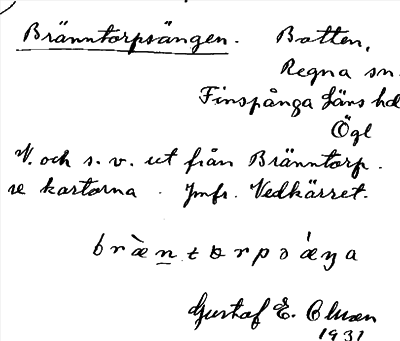 Bränntorpsängen. Botten,
Regna sn.
Finspånga läns hd
Ögl
V. och s. v. ut från Bränntorp.
se kartorna. Jmfr. Vedkärret.
Gustaf E. Olsson
1931